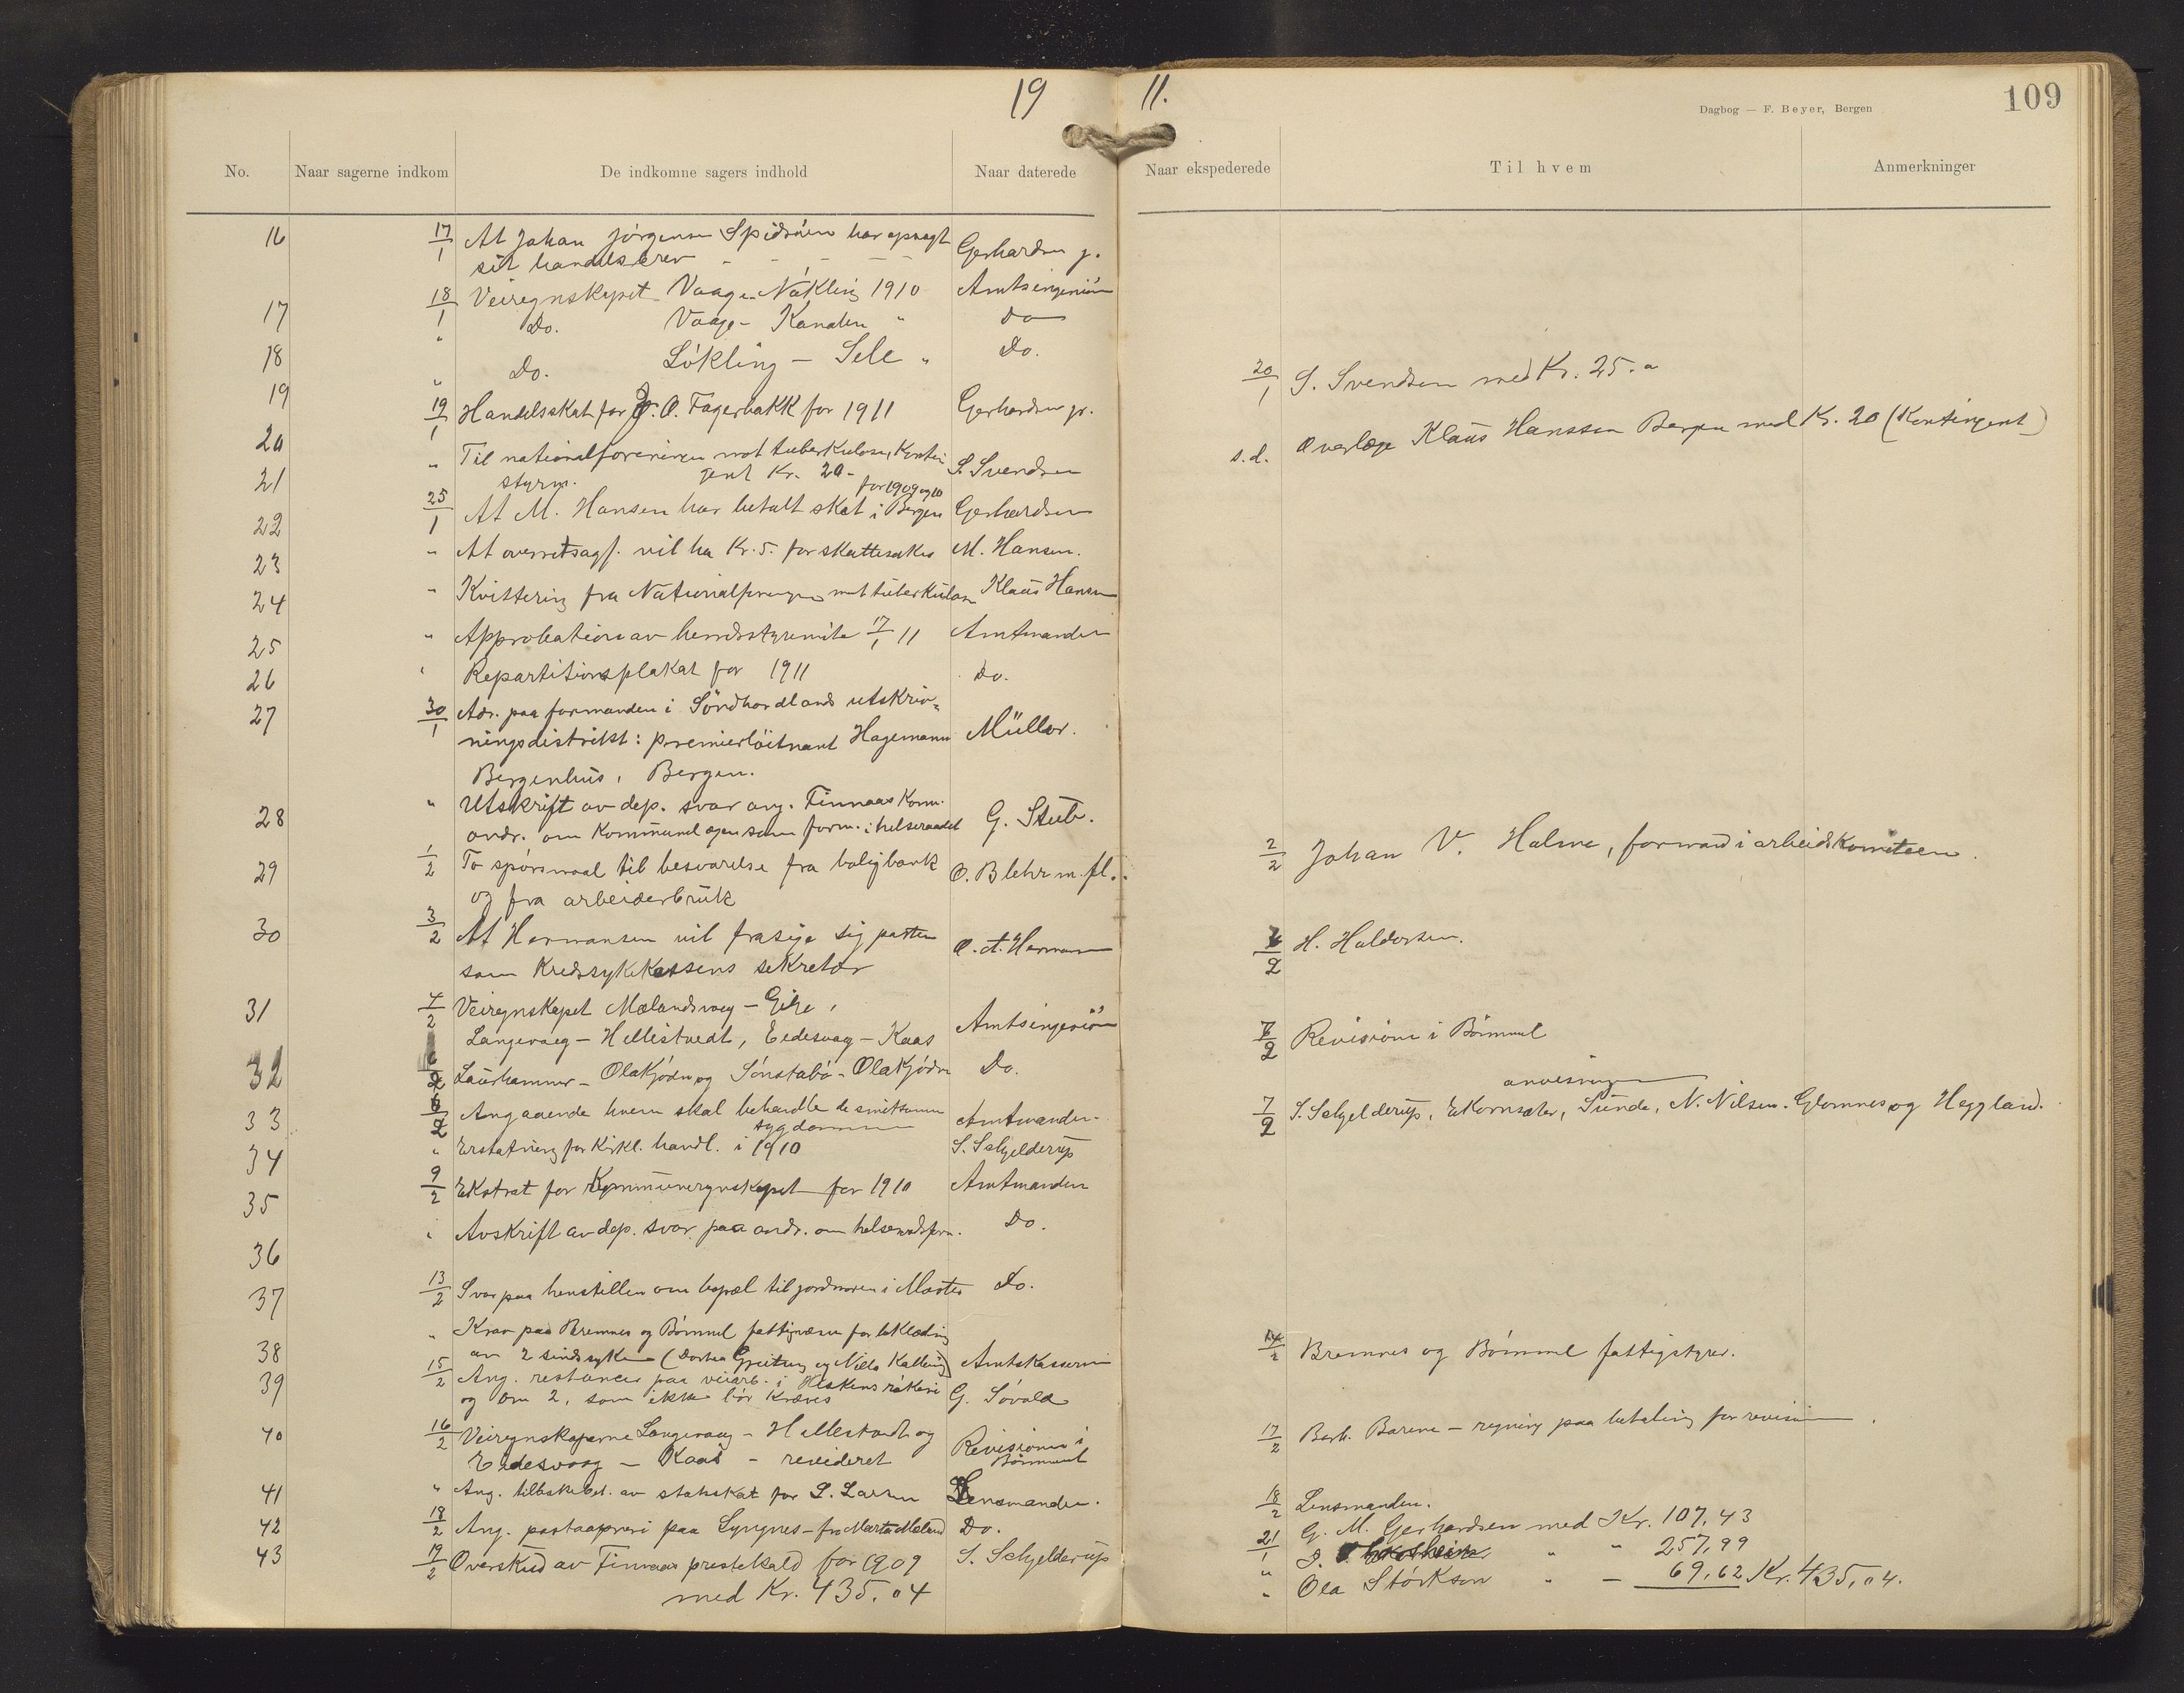 19 11.
Dagbog — F. Beyer, Bergen
109
No. Naar sagerne indkom De indkomne sagers indhold Naar daterede Naar ekspederede Til hvem Anmerkninger
16 17/1 At Johan Jörgensen Spidsöen har opsagt Gerhardsen jr.
sit handelsbrev
17 18/1 Veiregnskapet Vaage-Nökling 1910 Amtsingeniör
18 " Do. Vaage - Kanalen " Do
19 " Do. Lökling - Sele " Do.
20/1 S. Svendsen med Kr. 25.
20 19/1 Handelsskat for J. O. Fagerbakk for 1911 Gerhardsen jr.
21 " Til nationalforeningen mot tuberkulosen, Kontin
styrm. gent Kr. 20 - S. Svendsen
s.d. Overlæge Klaus Hanssen Bergen med Kr. 20 (Kontingent)
for 1909 og 10
22 25/1 At M. Hansen har betalt skat i Bergen Gerhardsen
23 " At overretsagf. vil ha Kr. 5. for skattesaken M. Hansen.
24 " Kvittering fra Nationalforeningen mot tuberkulosen Klaus Hansen
25 " Approbation av herredsstyremøte 17/1 11 Amtmanden
26 " Repartitionsplakat for 1911 Do.
27 30/1 Adr. paa formanden i Söndhordlands utskriv-
ningsdistrikt: premierlöitnant Hagemann Müller.
Bergenhus, Bergen.
28 " Utskrift av dep. svar ang. Finnaas Kom.
andr. om Kommunelægen som form. i helseraadet G. Stub.
29 1/2 To spörsmaal til besvarelse fra boligbank O. Blehr m. fl.
og fra arbeiderbruk
2/2 Johan V. Holme, formand i arbeidskomiteen.
30 3/2 At Hermansen vil frasige sig posten O. A. Herman
som Kredssykekassens sekretær
2 H. Haldorsen.
31 4/2 Veiregnskapet Mælandsvaag - Eike,
Langevaag - Hillestvedt, Eidesvaag - Kaas Amtsingeniör
7/2 Revisionen i Bömmel
32 6/2 Laurhammer - Olakjödn og Sönstabö - Olakjödn Do.
33 6/2 Angaaende hvem skal behandle de smitsomme Amtmanden
sygdomme
anvisninger
7/2 S. Schjelderup, Ekornsæter, Sunde, N. Nilsen. Glomnes og Heggland.
34 " Erstatning for Kirkl. handl. i 1910 S. Schjelderup
35 9/2 Ekstrat for Kommuneregnskapet for 1910 Amtmanden
36 " Avskrift av dep. svar paa andr. om helseraadsform. Do.
37 13/2 Svar paa henstillen om bopæl til jordmoren i Moster Do.
38 " Krav paa Bremnes og Bömmel fattigvæsen for beklædning
av 2 sindssyke (Dorthea Greitung og Nils Kallevig) Amtskassereren
14/2 Bremnes og Bömmel fattigstyrer.
39 15/2 Ang. restancer paa veiarb. i Hiskens rökeri
og om 2, som ikke bör kræves G. Sövold
40 16/2 Veiregnskaperne Langevaag - Hillestvedt og
Eidesvaag - Kaas - revideret Revisionen i Bömmel
17/2 Barth. Barene - regning paa betaling for revision.
41 " Ang. tilbakebet. av statsskat for S. Larsen Lensmanden.
18/2 Lensmanden.
42 18/2 Ang. postaapneri paa Lyngnes - fra Marta Mæland Do.
43 19/2 Overskud av Finnaas prestekald for 1909 S. Schjelderup
med Kr. 435.04
21/1 G. M. Gerhardsen med Kr. 107,43
" " " 257,99
" Ola Störksen " — 69,62 Kr. 435,04.